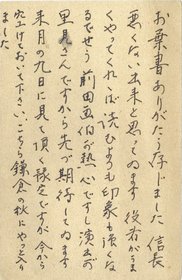 お葉書ありがたう存じました 信長
悪くない出来と思つてゐます 役者がうま
くやつてくれゝば読むよりも印象も強くな
るでせう 前田画伯が熱心ですし演出の
里見さんですから先づ期待してゐます
来月の九日に見て頂く様定ですが今から
空けておいて下さい、こちら鎌倉の秋にやつと入り
ました